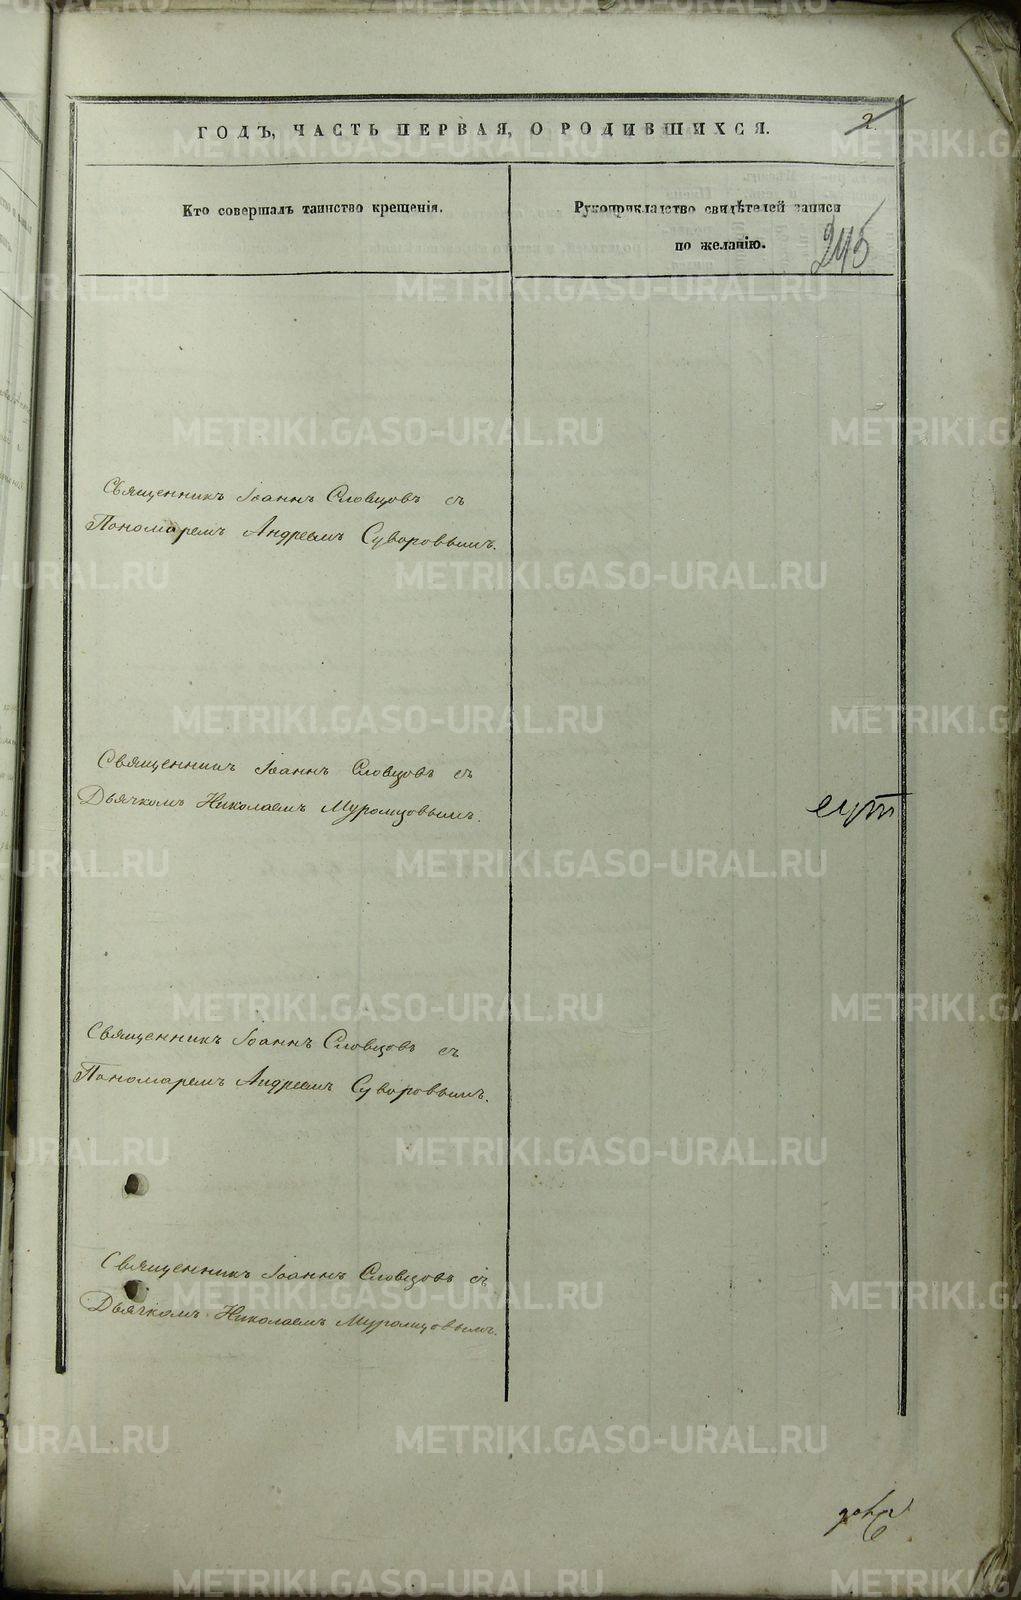 ГОДЪ, ЧАСТЬ ПЕРВАЯ, О РОДИВШИХСЯ.
2.
Кто совершалъ таинство крещенія.
Рукоприкладство свидѣтелей записи
по желанію.
245
Священникъ Іоаннъ Словцовъ съ
Пономаремъ Андреемъ Суворовымъ.
Священникъ Іоаннъ Словцовъ съ
Дьячкомъ Николаемъ Муромцовымъ.
Священникъ Іоаннъ Словцовъ съ
Пономаремъ Андреемъ Суворовымъ.
Священникъ Іоаннъ Словцовъ съ
Дьячкомъ Николаемъ Муромцовымъ.
METRIKI.GASO-URAL.RU